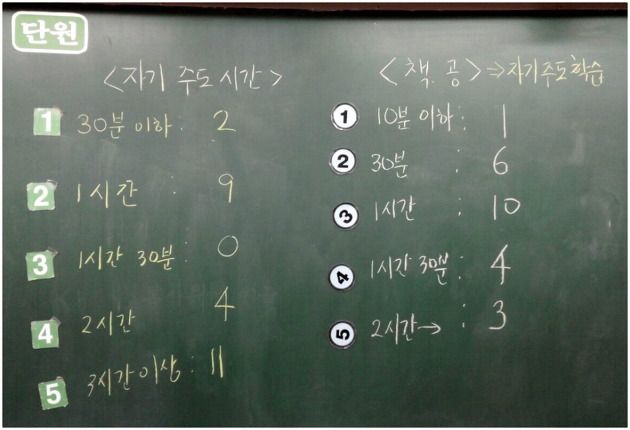 단원
<자기 주도 시간>
1 30분 이하 : 2
2 1시간 : 9
3 1시간 30분 : 0
4 2시간 4
5 3시간 이상 : 11
<책. 공> ⇒ 자기주도학습
1 10분 이하 : 1
2 30분 : 6
3 1시간 : 10
4 1시간 30분 : 4
5 2시간→ : 3